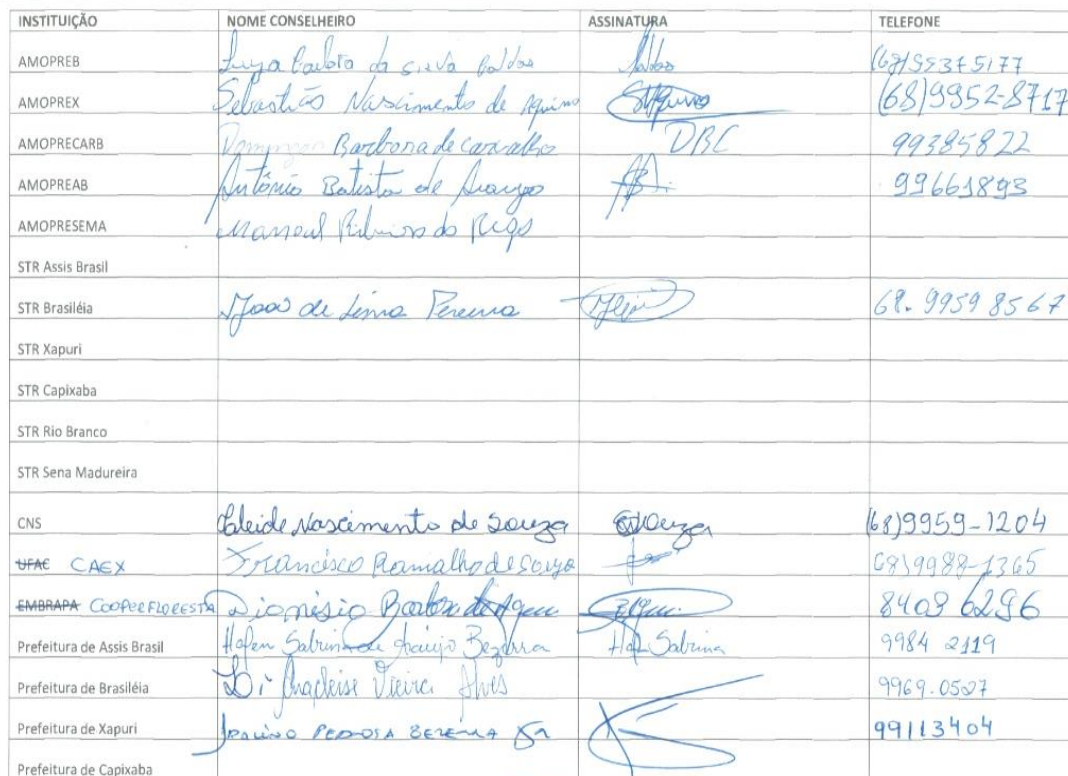 INSTITUIÇÃO NOME CONSELHEIRO ASSINATURA TELEFONE
AMOPREB da
AMOPREX Sebastião Nascimento de Aquino (68)9952-8717
AMOPRECARB Barbosa de carvalho DBC 99385822
AMOPREAB Antônio Batista de Araujo 99661893
AMOPRESEMA Manoel do
STR Assis Brasil
STR Brasiléia Joao de Lima Pereira 68. 9959 8567
STR Xapuri
STR Capixaba
STR Rio Branco
STR Sena Madureira
CNS Nascimento de Souza (68)9959-1204
UFAC CAEX Francisco Ramalho de Souza 68)9988-1365
EMBRAPA COOPERFLORESTA Dionésio 8403 6296
Prefeitura de Assis Brasil Sabrina de Araújo Bezerra Sabrina 9984 2119
Prefeitura de Brasiléia Vieira Alves 9969.0527
Prefeitura de Xapuri PEDROSA BEZERRA 99113404
Prefeitura de Capixaba